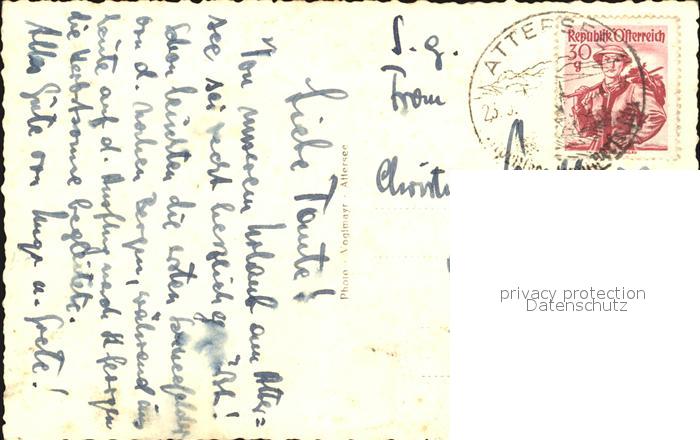 Liebe Tante!
Von unserem Urlaub am Atter=
see sei recht herzlich gegrüßt!
Schon leuchten die ersten Schneefelder
von d. hohen Bergen, während uns
heute auf d. Ausflug nach St. Georgen
die Herbstsonne begleitete.
Alles Gute von Inge u. Grete!
Photo Voglmayr - Attersee
S. g.
Frau
ATTERSEE
Republik Österreich
30
g
privacy protection
Datenschutz